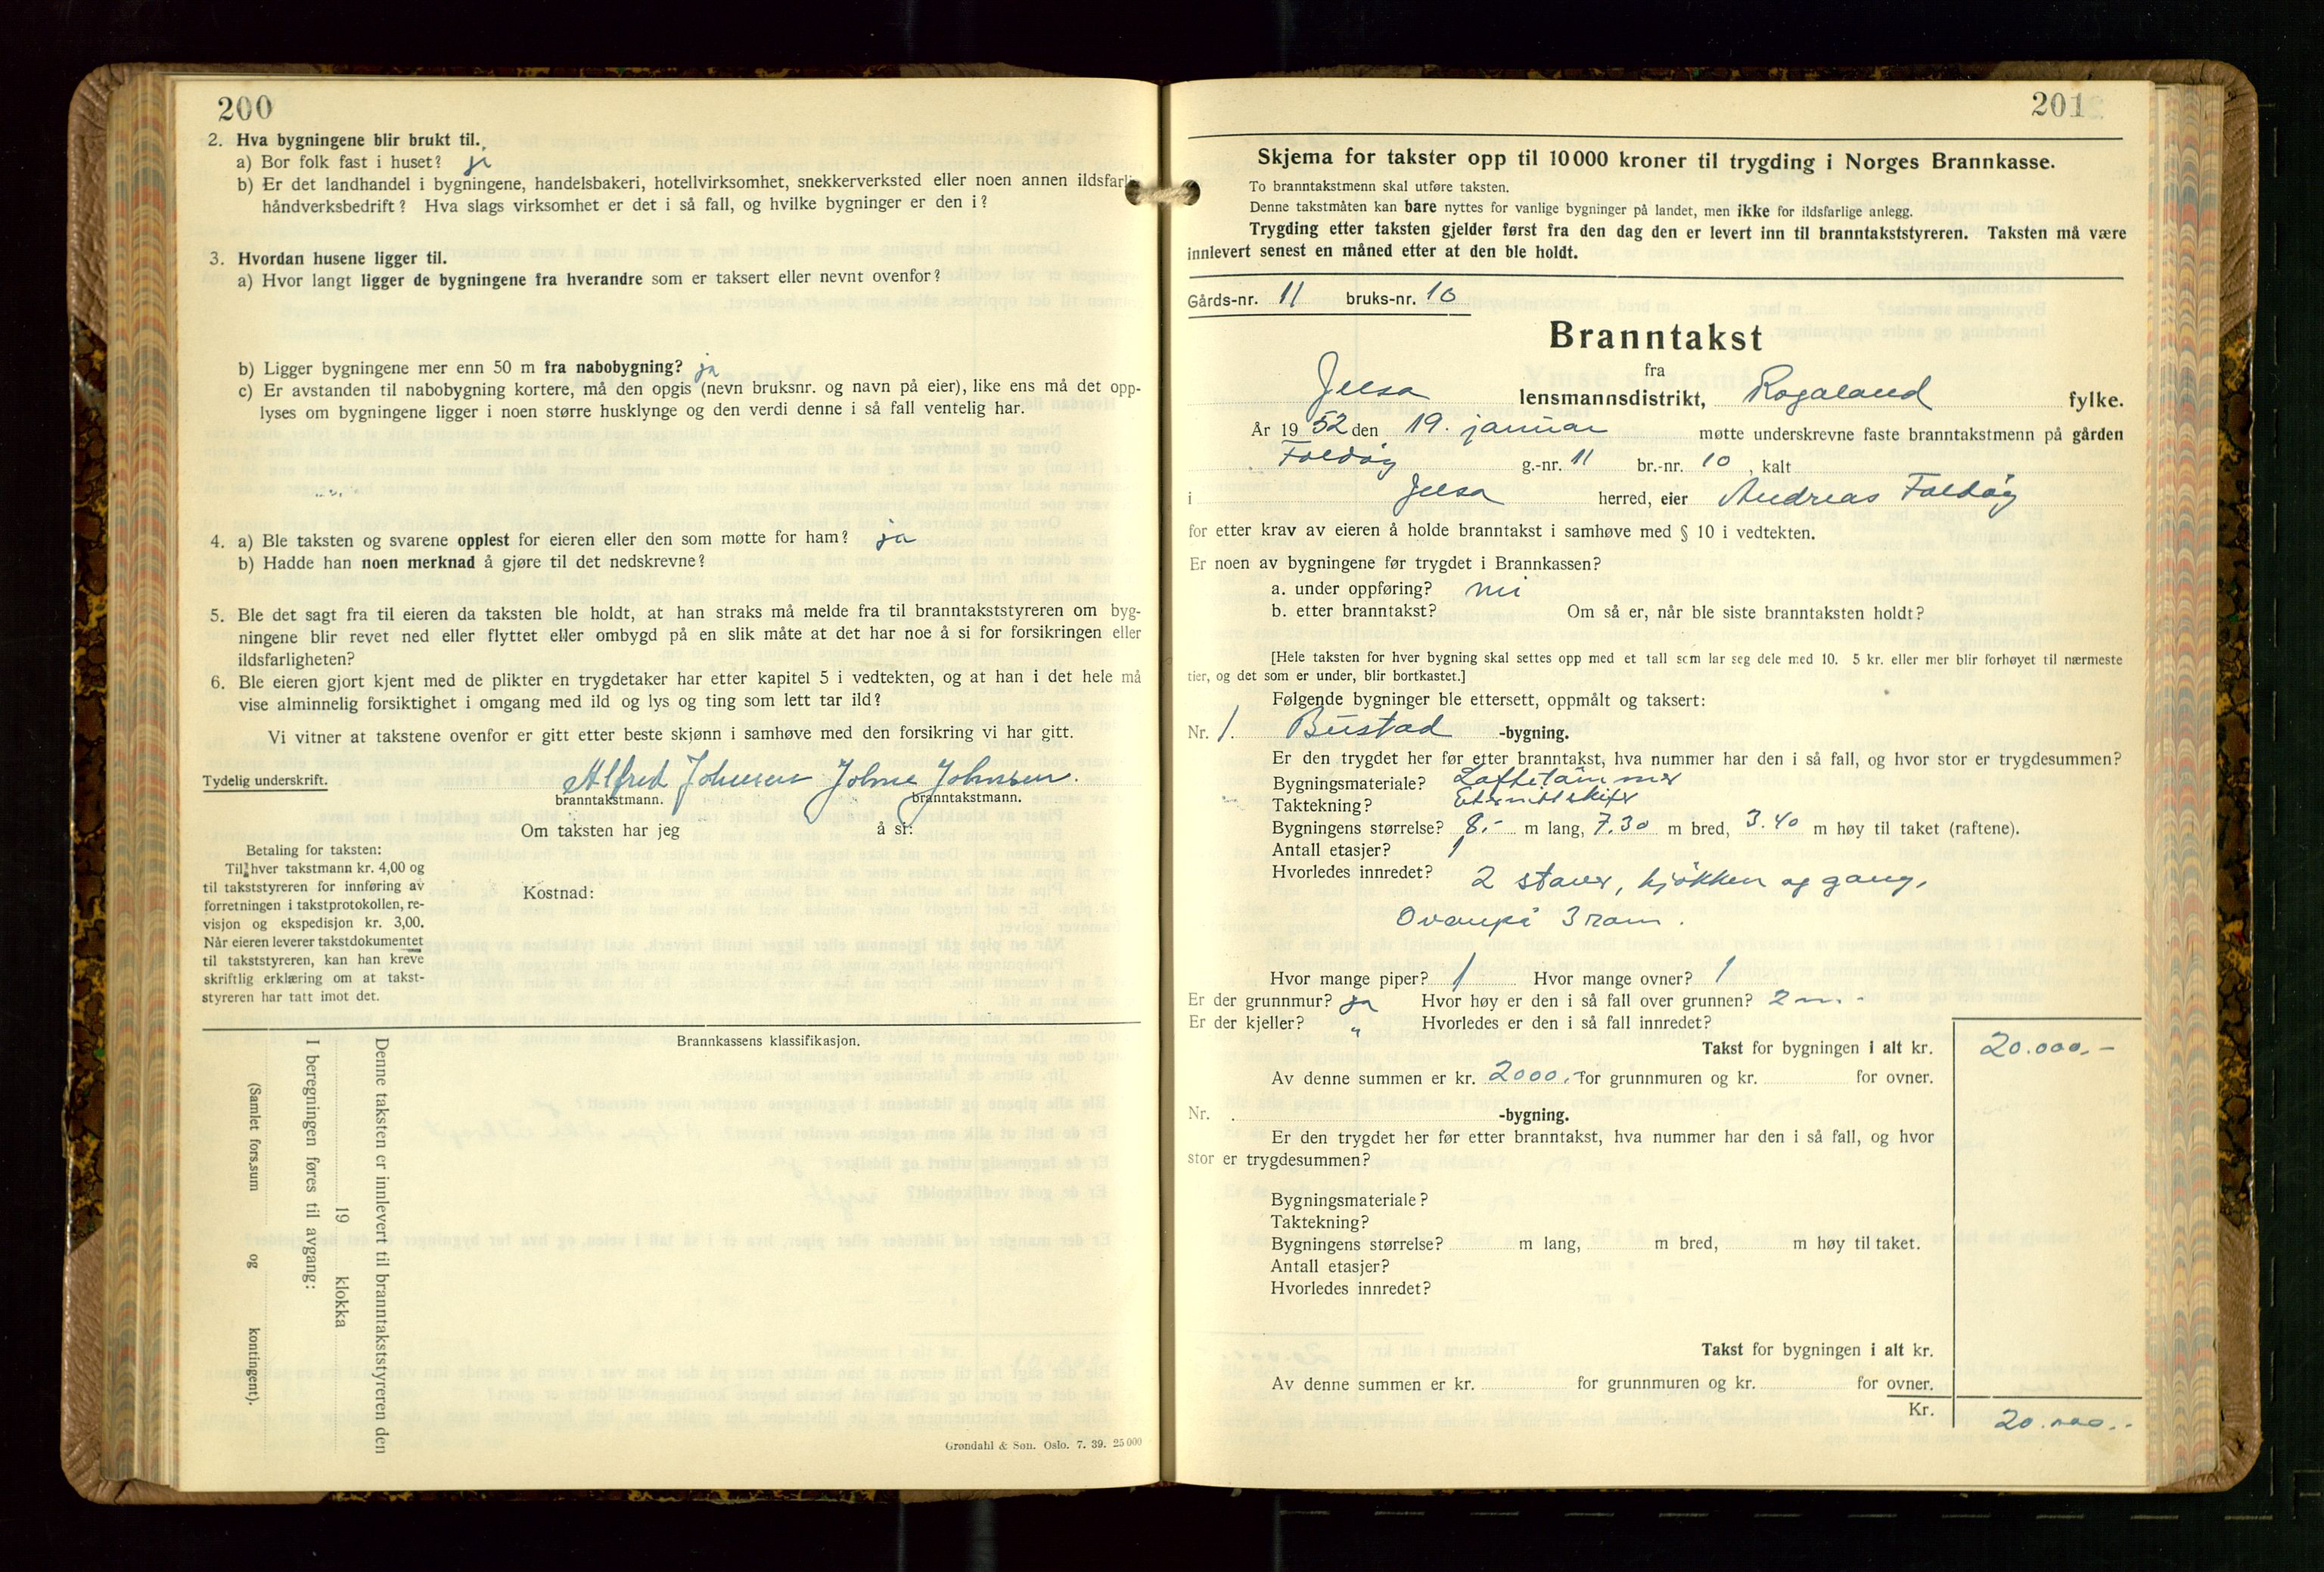 200
2. Hva bygningene blir brukt til.
a) Bor folk fast i huset? ja
b) Er det landhandel i bygningene, handelsbakeri, hotellvirksomhet, snekkerverksted eller noen annen ildsfarlig
håndverksbedrift? Hva slags virksomhet er det i så fall, og hvilke bygninger er den i?
3. Hvordan husene ligger til.
a) Hvor langt ligger de bygningene fra hverandre som er taksert eller nevnt ovenfor?
b) Ligger bygningene mer enn 50 m fra nabobygning? ja
c) Er avstanden til nabobygning kortere, må den opgis (nevn bruksnr. og navn på eier), like ens må det opp-
lyses om bygningene ligger i noen større husklynge og den verdi denne i så fall ventelig har.
4. a) Ble taksten og svarene opplest for eieren eller den som møtte for ham? ja
b) Hadde han noen merknad å gjøre til det nedskrevne?
5. Ble det sagt fra til eieren da taksten ble holdt, at han straks må melde fra til branntakststyreren om byg-
ningene blir revet ned eller flyttet eller ombygd på en slik måte at det har noe å si for forsikringen eller
ildsfarligheten?
6. Ble eieren gjort kjent med de plikter en trygdetaker har etter kapitel 5 i vedtekten, og at han i det hele må
vise alminnelig forsiktighet i omgang med ild og lys og ting som lett tar ild?
Vi vitner at takstene ovenfor er gitt etter beste skjønn i samhøve med den forsikring vi har gitt.
Tydelig underskrift. Alfred Johnsen Johne Johnsen.
branntakstmann. branntakstmann.
Om taksten har jeg å si:
Betaling for taksten:
Til hver takstmann kr. 4,00 og
til takststyreren for innføring av
forretningen i takstprotokollen, re-
visjon og ekspedisjon kr. 3,00.
Når eieren leverer takstdokumentet
til takststyreren, kan han kreve
skriftlig erklæring om at takst-
styreren har tatt imot det.
Kostnad:
Brannkassens klassifikasjon.
Denne taksten er innlevert til branntakststyreren den
19 klokka
I beregningen føres til avgang:
(Samlet fors.sum og kontingent).
Grøndahl & Søn. Oslo. 7. 39. 25 000
201
Skjema for takster opp til 10 000 kroner til trygding i Norges Brannkasse.
To branntakstmenn skal utføre taksten.
Denne takstmåten kan bare nyttes for vanlige bygninger på landet, men ikke for ildsfarlige anlegg.
Trygding etter taksten gjelder først fra den dag den er levert inn til branntakststyreren. Taksten må være
innlevert senest en måned etter at den ble holdt.
Gårds-nr. 11 bruks-nr. 10
Branntakst
fra
Jelsa lensmannsdistrikt, Rogaland fylke.
År 1952 den 19. januar møtte underskrevne faste branntakstmenn på gården
Foldøy g.-nr. 11 br.-nr. 10, kalt
i Jelsa herred, eier Andreas Foldøy
for etter krav av eieren å holde branntakst i samhøve med § 10 i vedtekten.
Er noen av bygningene før trygdet i Brannkassen?
a. under oppføring? nei
b. etter branntakst? Om så er, når ble siste branntaksten holdt?
[Hele taksten for hver bygning skal settes opp med et tall som lar seg dele med 10. 5 kr. eller mer blir forhøyet til nærmeste
tier, og det som er under, blir bortkastet.]
Følgende bygninger ble ettersett, oppmålt og taksert:
Nr. 1. Bustad -bygning.
Er den trygdet her før etter branntakst, hva nummer har den i så fall, og hvor stor er trygdesummen?
Bygningsmateriale? Laftetømmer
Taktekning? Eternittskifer
Bygningens størrelse? 8.- m lang, 7.30 m bred, 3.40 m høy til taket (raftene).
Antall etasjer? 1
Hvorledes innredet? 2 stover, kjøkken og gang,
Ovanpå 3 rom.
Hvor mange piper? 1 Hvor mange ovner? 1
Er der grunnmur? ja Hvor høy er den i så fall over grunnen? 2 m.
Er der kjeller? " Hvorledes er den i så fall innredet?
Takst for bygningen i alt kr. 20.000.-
Av denne summen er kr. 2000.- for grunnmuren og kr. for ovner.
Nr. -bygning.
Er den trygdet her før etter branntakst, hva nummer har den i så fall, og hvor
stor er trygdesummen?
Bygningsmateriale?
Taktekning?
Bygningens størrelse? m lang, m bred, m høy til taket.
Antall etasjer?
Hvorledes innredet?
Takst for bygningen i alt kr.
Av denne summen er kr. for grunnmuren og kr. for ovner.
Kr. 20.000.-